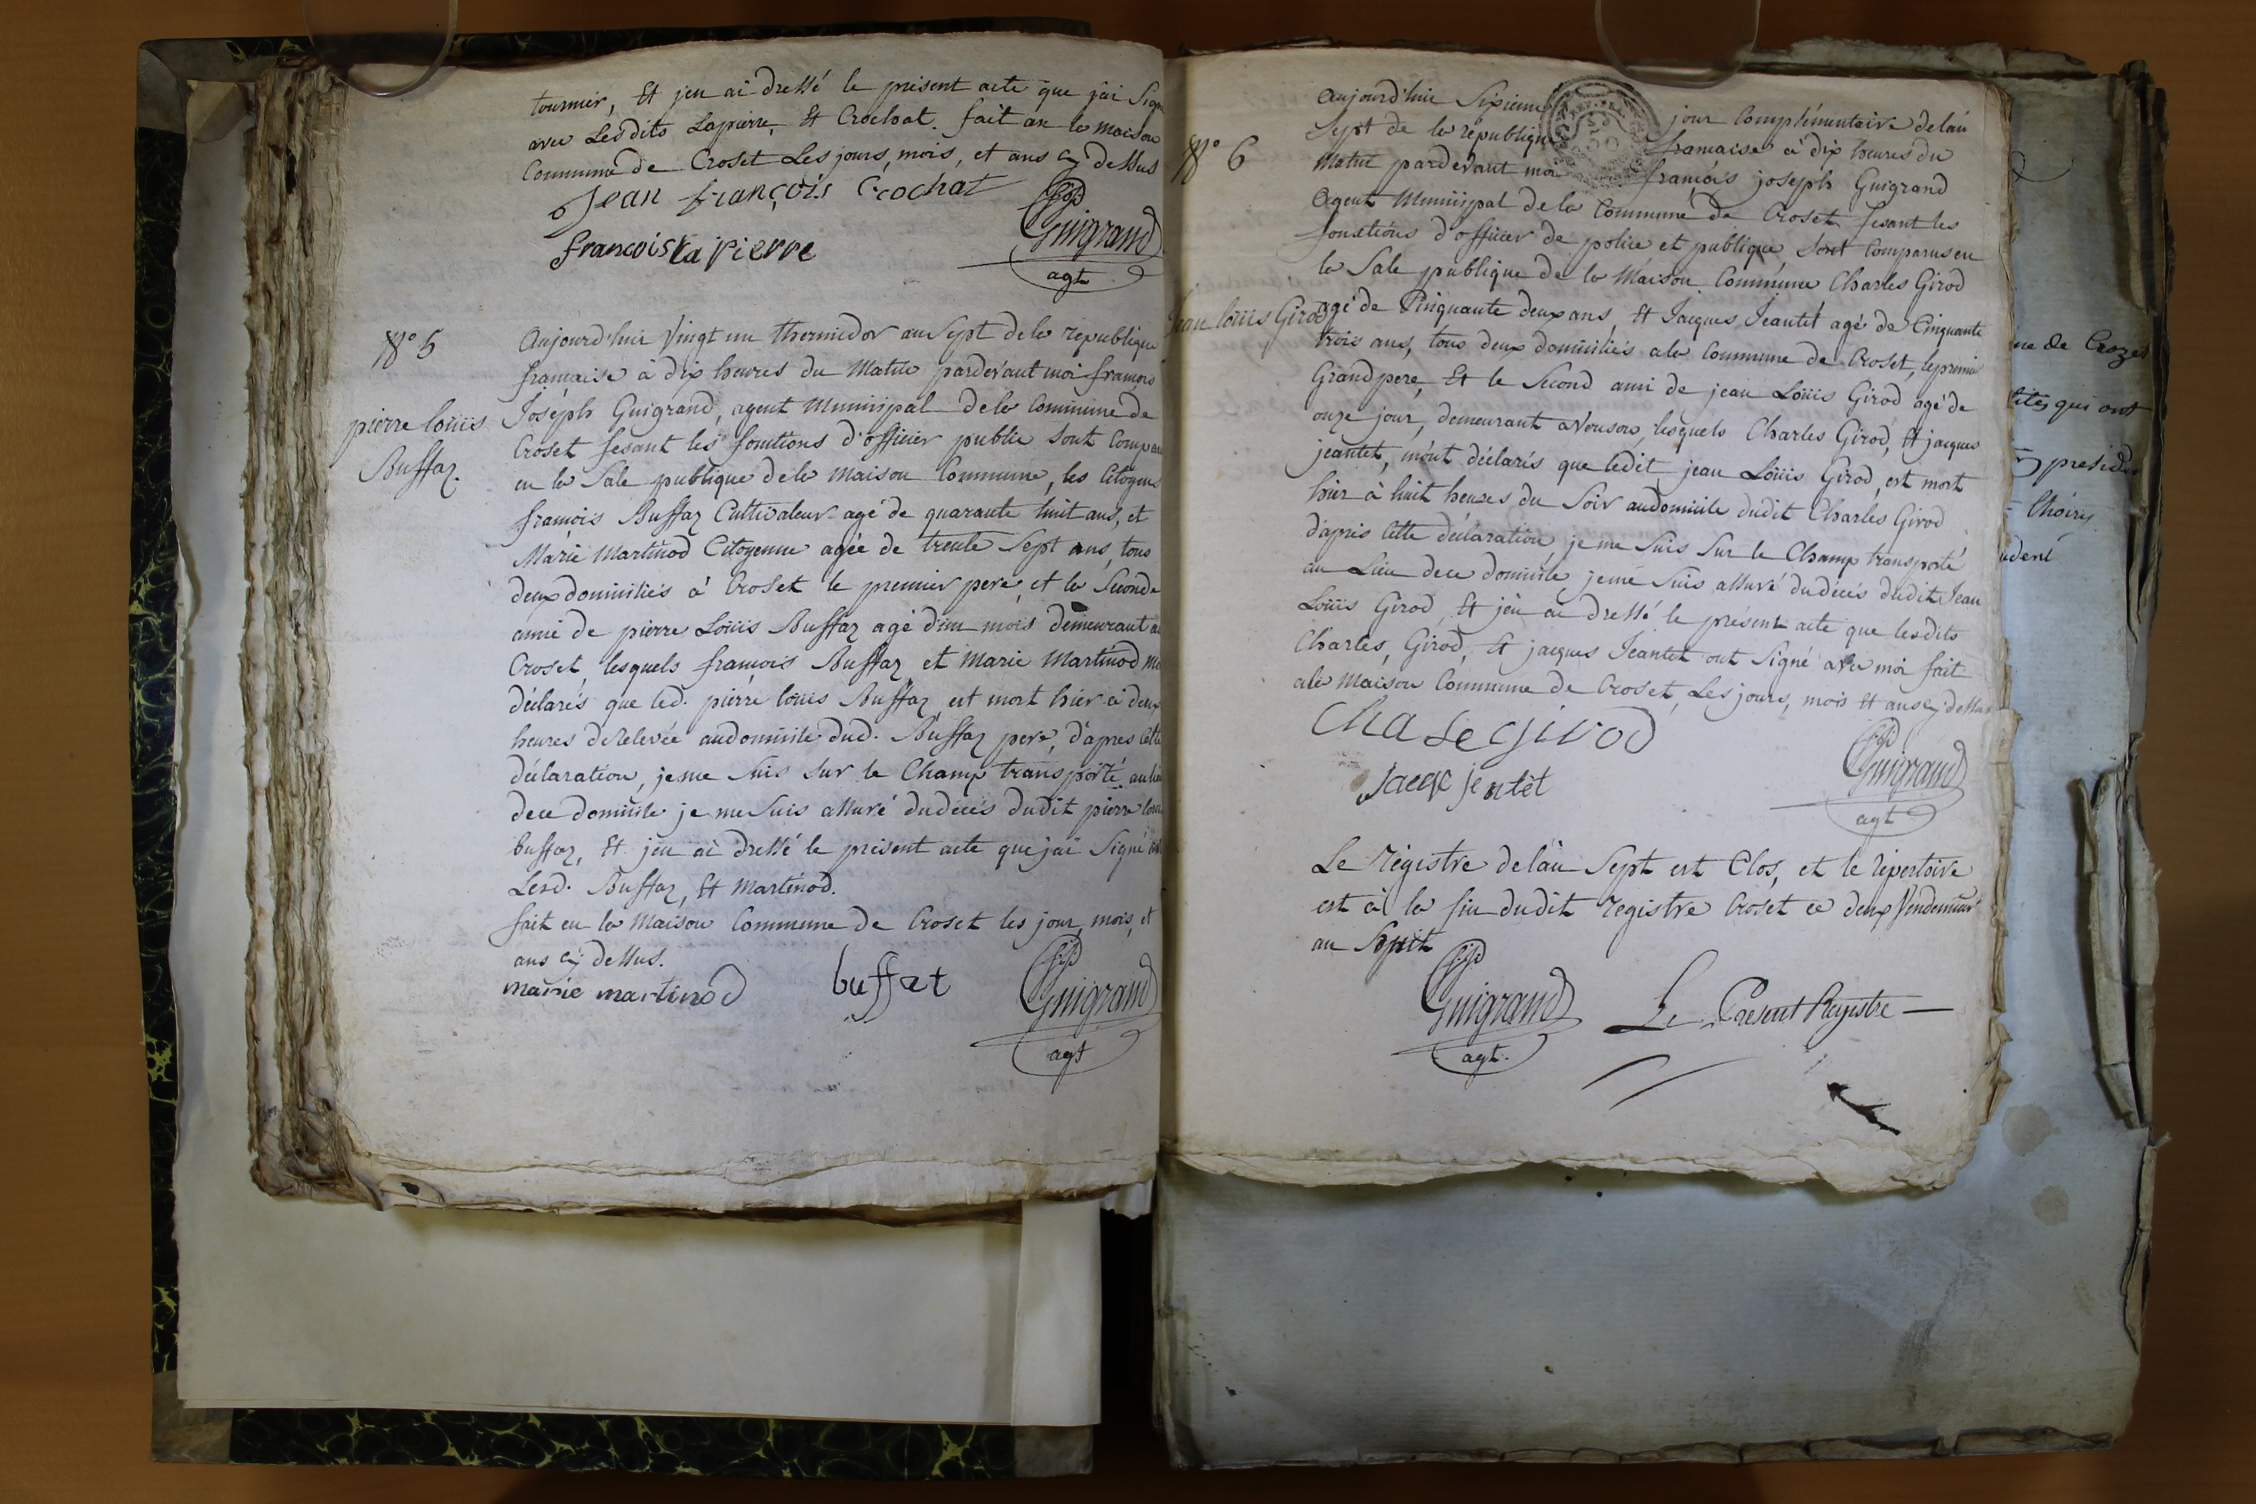 tournier, Et jen ai dressé le présent acte que j'ai Signé
avec Lesdits Lapierre, Et Crochat. fait an la maison
Commune de Croset Les jours, mois, et ans cy dessus
Jean françois Crochat
françois la pierre
Guigrand
agt
N° 5
pierre loüis
Buffaz.
Aujourd'hui Vingt un thermidor an Sept de la republique
française à dix heures du Matin pardevant moi françois
Joseph Guigrand, agent Municipal de la Commune de
Croset fesant les fonctions d'officier public Sont Comparu
en la Sale publique de la Maison Commune, les Citoyens
françois Buffaz Cultivateur agé de quarante huit ans, et
Marie Martinod Citoyenne agée de trente Sept ans, tous
deux domiciliés à Croset le premier pere, et la Seconde
amie de pierre Loüis Buffaz agé d'un mois demeurant a
Croset, lesquels françois Buffaz et Marie Martinod
déclarés que led. pierre loüis Buffaz est mort hier à deux
heures de relevée au domicile dud. Buffaz pere, d'apres Cette
déclaration, je me Suis Sur le Champ transporté au lieu
de ce domicile je me Suis assuré du décès dudit pierre loüis
buffaz, Et jen ai dressé le présent acte que jai Signé
Lesd. Buffaz, Et Martinod.
fait en la Maison Commune de Croset les jour, mois, et
ans cy dessus.
marie martinod buffat Guigrand
agt
N° 6
Jean loüis Girod
Aujourd'hui Sixieme jour Complémentaire de l'an
Sept de la republique française à dix heures du
Matin pardevant moi françois joseph Guigrand
Agent Municipal de la Commune de Croset fesant les
fonctions d'officier de police et publique, Sont Comparus en
la Sale publique de la Maison Commune Charles Girod
agé de Cinquante deux ans, Et Jacques Jeantet agé de Cinquante
trois ans, tous deux domiciliés a la Commune de Croset, le premier
Grand pere, Et le Second ami de jean Loüis Girod agé de
onze jour, demeurant a Vouson, lesquels Charles Girod, Et jacques
jeantet, m'ont déclarés que ledit jean Loüis Girod, est mort
hier à huit heures du Soir au domicile dudit Charles Girod
d'apres Cette déclaration je me Suis Sur le Champ transporté
au Lieu de ce domicile je me Suis assuré du décès dudit Jean
Loüis Girod, Et j'en ai dressé le présent acte que lesdits
Charles, Girod, Et jacques Jeantet ont Signé avec moi fait
a la Maison Commune de Croset, Les jours, mois Et ans cy dessus
Cha Le Girod
Jacqe jentet
Guigrand
agt
Le Régistre de l'an Sept est Clos, et le répertoire
est à la fin dudit registre Croset ce deux Vendemiair
an huit
Guigrand
agt.
Le Présent Registre
de Crozet
qui ont
presid
Choiry